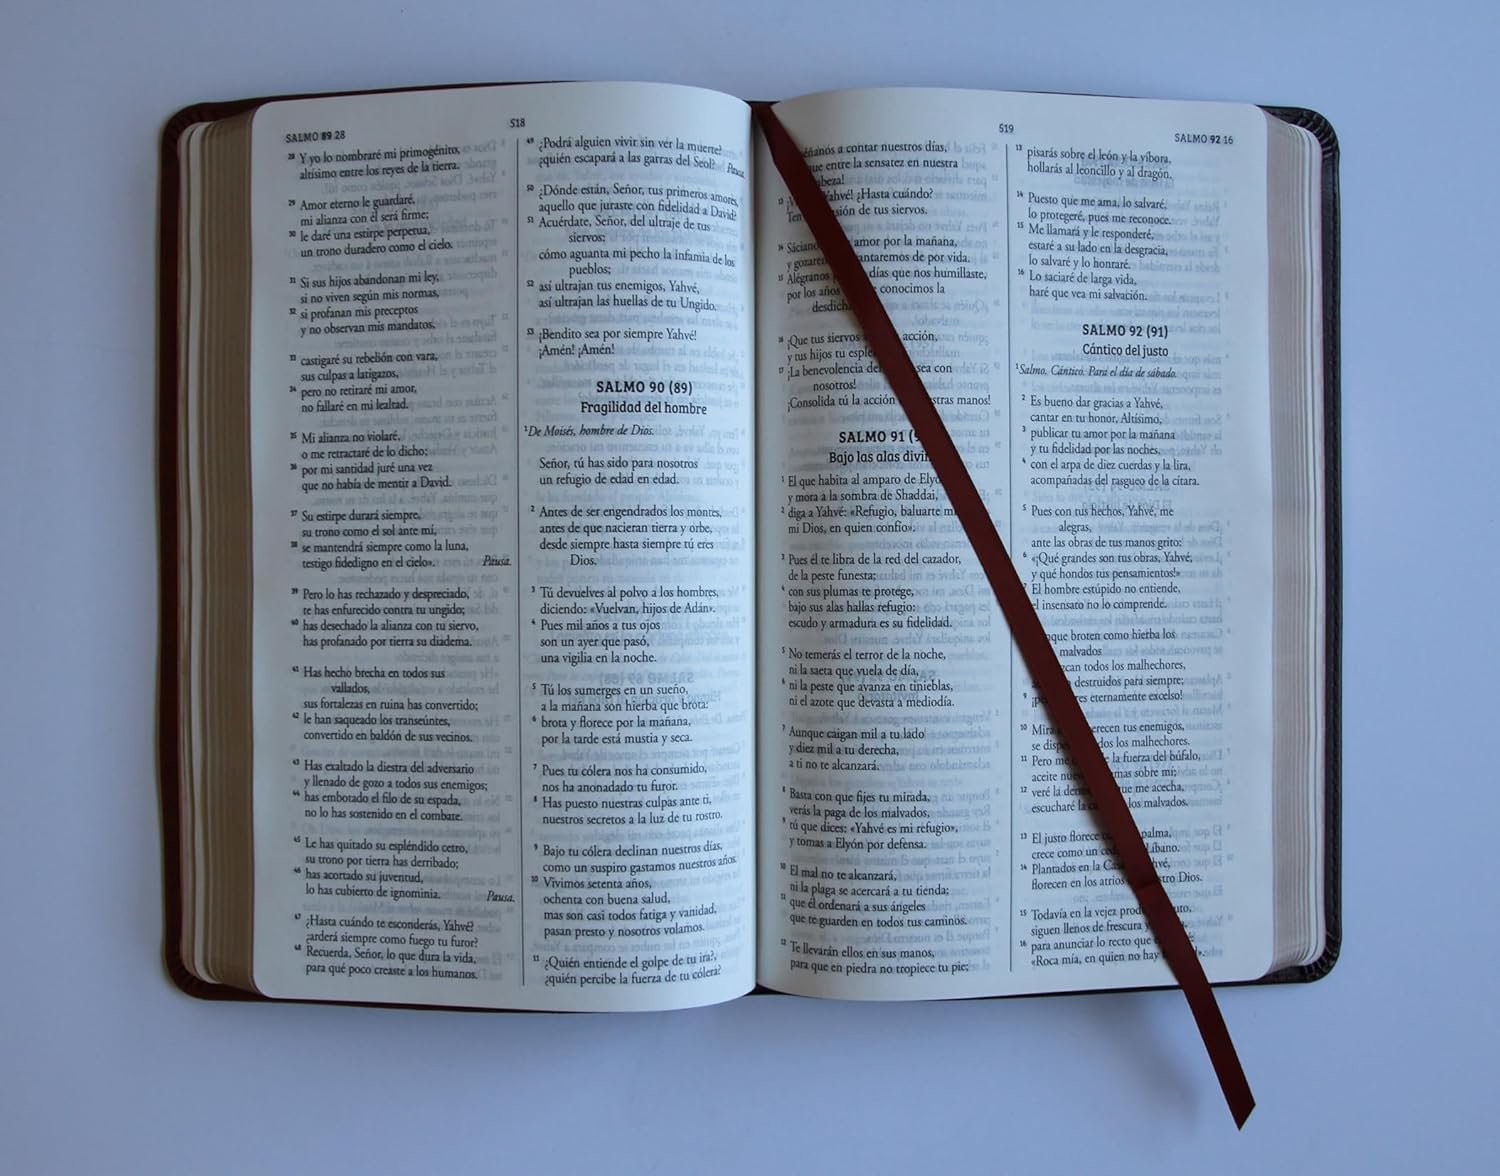 SALMO 89 28
518
28 Y yo lo nombraré mi primogénito,
altísimo entre los reyes de la tierra.
29 Amor eterno le guardaré,
mi alianza con él será firme;
30 le daré una estirpe perpetua,
un trono duradero como el cielo.
31 Si sus hijos abandonan mi ley,
si no viven según mis normas,
32 si profanan mis preceptos
y no observan mis mandatos,
33 castigaré su rebelión con vara,
sus culpas a latigazos,
34 pero no retiraré mi amor,
no fallaré en mi lealtad.
35 Mi alianza no violaré,
o me retractaré de lo dicho;
36 por mi santidad juré una vez
que no había de mentir a David.
37 Su estirpe durará siempre,
su trono como el sol ante mí,
38 se mantendrá siempre como la luna,
testigo fidedigno en el cielo». Pausa.
39 Pero lo has rechazado y despreciado,
te has enfurecido contra tu ungido;
40 has desechado la alianza con tu siervo,
has profanado por tierra su diadema.
41 Has hecho brecha en todos sus
vallados,
sus fortalezas en ruina has convertido;
42 le han saqueado los transeúntes,
convertido en baldón de sus vecinos.
43 Has exaltado la diestra del adversario
y llenado de gozo a todos sus enemigos;
44 has embotado el filo de su espada,
no lo has sostenido en el combate.
45 Le has quitado su espléndido cetro,
su trono por tierra has derribado;
46 has acortado su juventud,
lo has cubierto de ignominia. Pausa.
47 ¿Hasta cuándo te esconderás, Yahvé?
¿arderá siempre como fuego tu furor?
48 Recuerda, Señor, lo que dura la vida,
para qué poco creaste a los humanos.
49 ¿Podrá alguien vivir sin ver la muerte?
¿quién escapará a las garras del Seol? Pausa.
50 ¿Dónde están, Señor, tus primeros amores,
aquello que juraste con fidelidad a David?
51 Acuérdate, Señor, del ultraje de tus
siervos:
cómo aguanta mi pecho la infamia de los
pueblos;
52 así ultrajan tus enemigos, Yahvé,
así ultrajan las huellas de tu Ungido.
53 ¡Bendito sea por siempre Yahvé!
¡Amén! ¡Amén!
SALMO 90 (89)
Fragilidad del hombre
1 De Moisés, hombre de Dios.
Señor, tú has sido para nosotros
un refugio de edad en edad.
2 Antes de ser engendrados los montes,
antes de que nacieran tierra y orbe,
desde siempre hasta siempre tú eres
Dios.
3 Tú devuelves al polvo a los hombres,
diciendo: «Vuelvan, hijos de Adán».
4 Pues mil años a tus ojos
son un ayer que pasó,
una vigilia en la noche.
5 Tú los sumerges en un sueño,
a la mañana son hierba que brota:
6 brota y florece por la mañana,
por la tarde está mustia y seca.
7 Pues tu cólera nos ha consumido,
nos ha anonadado tu furor.
8 Has puesto nuestras culpas ante ti,
nuestros secretos a la luz de tu rostro.
9 Bajo tu cólera declinan nuestros días,
como un suspiro gastamos nuestros años.
10 Vivimos setenta años,
ochenta con buena salud,
mas son casi todos fatiga y vanidad,
pasan presto y nosotros volamos.
11 ¿Quién entiende el golpe de tu ira?,
¿quién percibe la fuerza de tu cólera?
519
SALMO 92 16
éñanos a contar nuestros días,
que entre la sensatez en nuestra
abeza!
Yahvé! ¿Hasta cuándo?
Ten sión de tus siervos.
14 Sácian amor por la mañana,
y gozare antaremos de por vida.
15 Alégranos días que nos humillaste,
por los años conocimos la
desdicha
16 ¡Que tus siervos acción,
y tus hijos tu esple
17 ¡La benevolencia de sea con
nosotros!
¡Consolida tú la acción stras manos!
SALMO 91 (9
Bajo las alas divin
1 El que habita al amparo de Elyó
y mora a la sombra de Shaddai,
2 diga a Yahvé: «Refugio, baluarte m
mi Dios, en quien confío».
3 Pues él te libra de la red del cazador,
de la peste funesta;
4 con sus plumas te protege,
bajo sus alas hallas refugio:
escudo y armadura es su fidelidad.
5 No temerás el terror de la noche,
ni la saeta que vuela de día,
6 ni la peste que avanza en tinieblas,
ni el azote que devasta a mediodía.
7 Aunque caigan mil a tu lado
y diez mil a tu derecha,
a ti no te alcanzará.
8 Basta con que fijes tu mirada,
verás la paga de los malvados,
9 tú que dices: «Yahvé es mi refugio»,
y tomas a Elyón por defensa.
10 El mal no te alcanzará,
ni la plaga se acercará a tu tienda;
11 que él ordenará a sus ángeles
que te guarden en todos tus caminos.
12 Te llevarán ellos en sus manos,
para que en piedra no tropiece tu pie;
13 pisarás sobre el león y la víbora,
hollarás al leoncillo y al dragón.
14 Puesto que me ama, lo salvaré,
lo protegeré, pues me reconoce.
15 Me llamará y le responderé,
estaré a su lado en la desgracia,
lo salvaré y lo honraré.
16 Lo saciaré de larga vida,
haré que vea mi salvación.
SALMO 92 (91)
Cántico del justo
1 Salmo. Cántico. Para el día de sábado.
2 Es bueno dar gracias a Yahvé,
cantar en tu honor, Altísimo,
3 publicar tu amor por la mañana
y tu fidelidad por las noches,
4 con el arpa de diez cuerdas y la lira,
acompañadas del rasgueo de la cítara.
5 Pues con tus hechos, Yahvé, me
alegras,
ante las obras de tus manos grito:
6 «¡Qué grandes son tus obras, Yahvé,
y qué hondos tus pensamientos!»
7 El hombre estúpido no entiende,
el insensato no lo comprende.
nque broten como hierba los
malvados
zcan todos los malhechores,
destruidos para siempre;
9 ¡p res eternamente excelso!
10 Mira erecen tus enemigos,
se disp dos los malhechores.
11 Pero me la fuerza del búfalo,
aceite nue amas sobre mí;
12 veré la de que me acecha,
escucharé la c los malvados.
13 El justo florece palma,
crece como un ced Líbano.
14 Plantados en la Cas hvé,
florecen en los atrios stro Dios.
15 Todavía en la vejez prod uto,
siguen llenos de frescura
16 para anunciar lo recto que
«Roca mía, en quien no hay